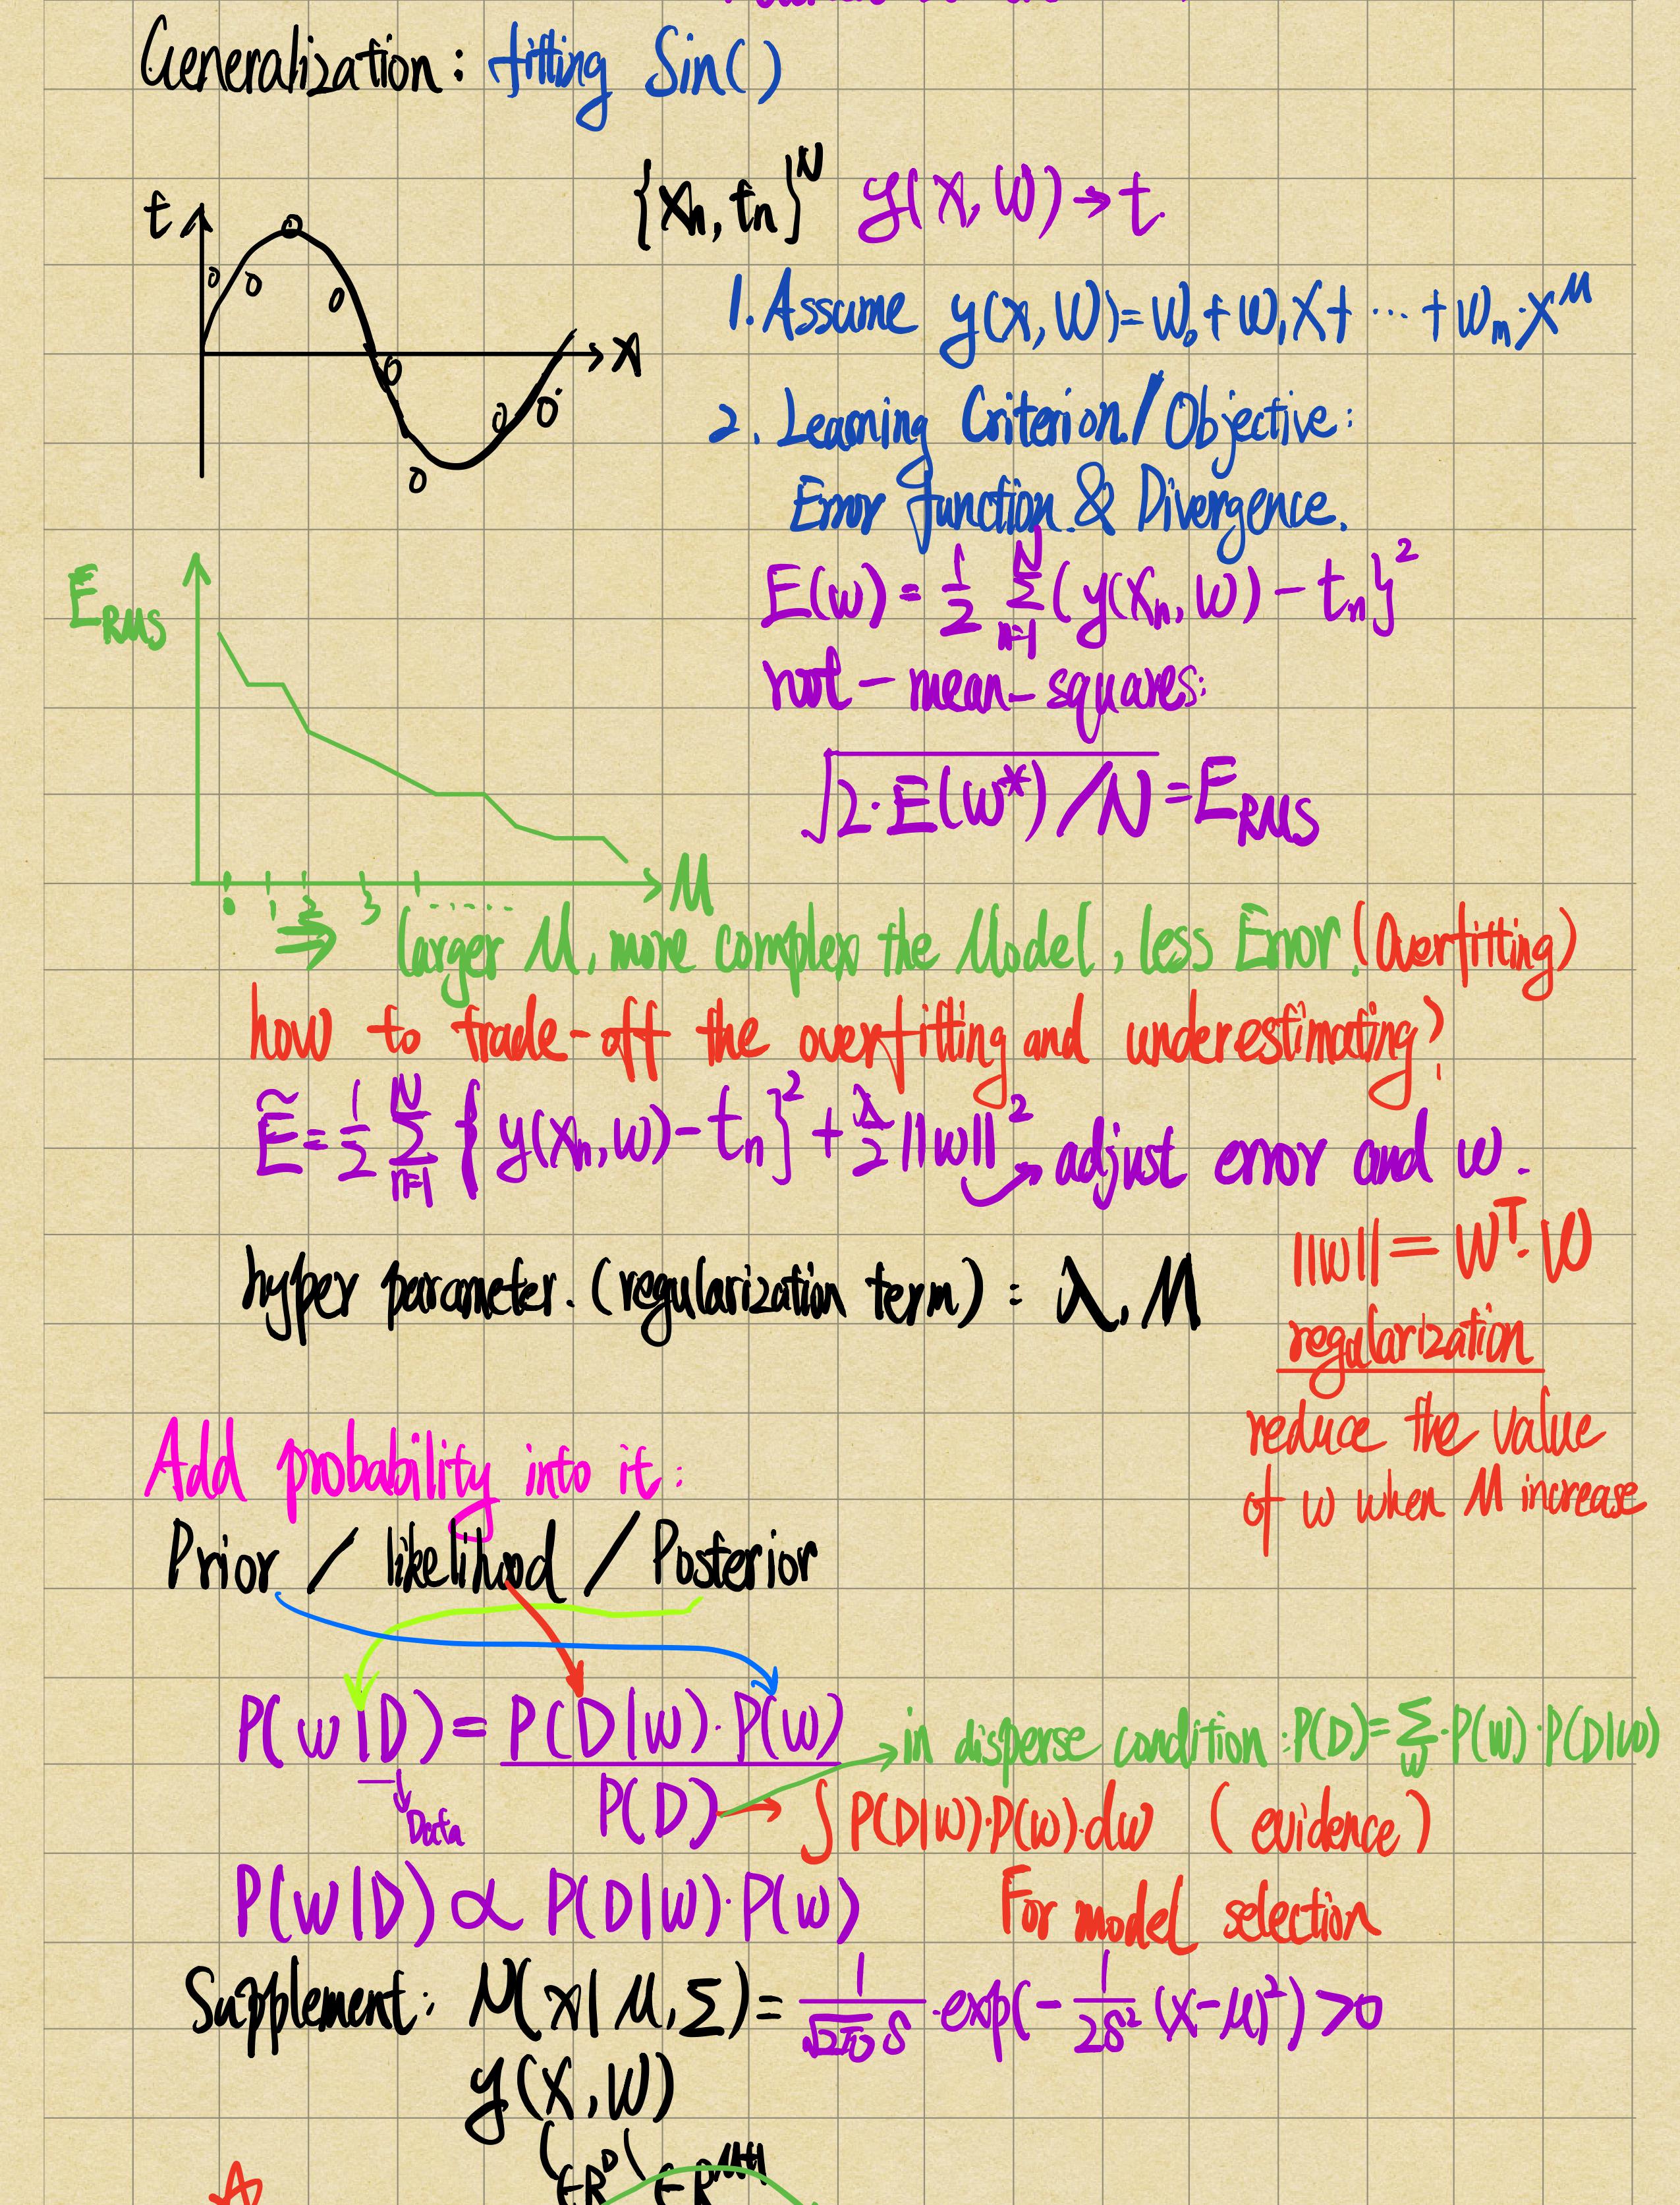 Generalization: fitting Sin()
{xn, tn}^N y(x, w) → t
t
x
1. Assume y(x, w) = w0 + w1x + ··· + wm·x^M
2. Learning Criterion / Objective:
Error function & Divergence.
E(w) = 1/2 Σ_{n=1}^N (y(xn, w) - tn}^2
root-mean-squares:
√(2·E(w*)/N) = E_RMS
E_RMS
M
0 1 2 3 ······
⇒ larger M, more complex the Model, less Error! (Overfitting)
how to trade-off the overfitting and underestimating?
Ẽ = 1/2 Σ_{n=1}^N { y(xn, w) - tn }^2 + λ/2 ||w||^2 → adjust error and w.
||w|| = w^T·w
hyper parameter. (regularization term) : λ, M
regularization
reduce the value
of w when M increase
Add probability into it:
Prior / likelihood / Posterior
P(w|D) = P(D|w)·P(w) / P(D)
→ in disperse condition: P(D) = Σ_w·P(w)·P(D|w)
Data
→ ∫ P(D|w)·P(w)·dw (evidence)
P(w|D) ∝ P(D|w)·P(w)
For model selection
Supplement: N(x|μ, Σ) = 1/(√2π δ)·exp(-1/(2δ^2) (x-μ)^2) > 0
y(x, w)
∈R^D ∈R^{M+1}